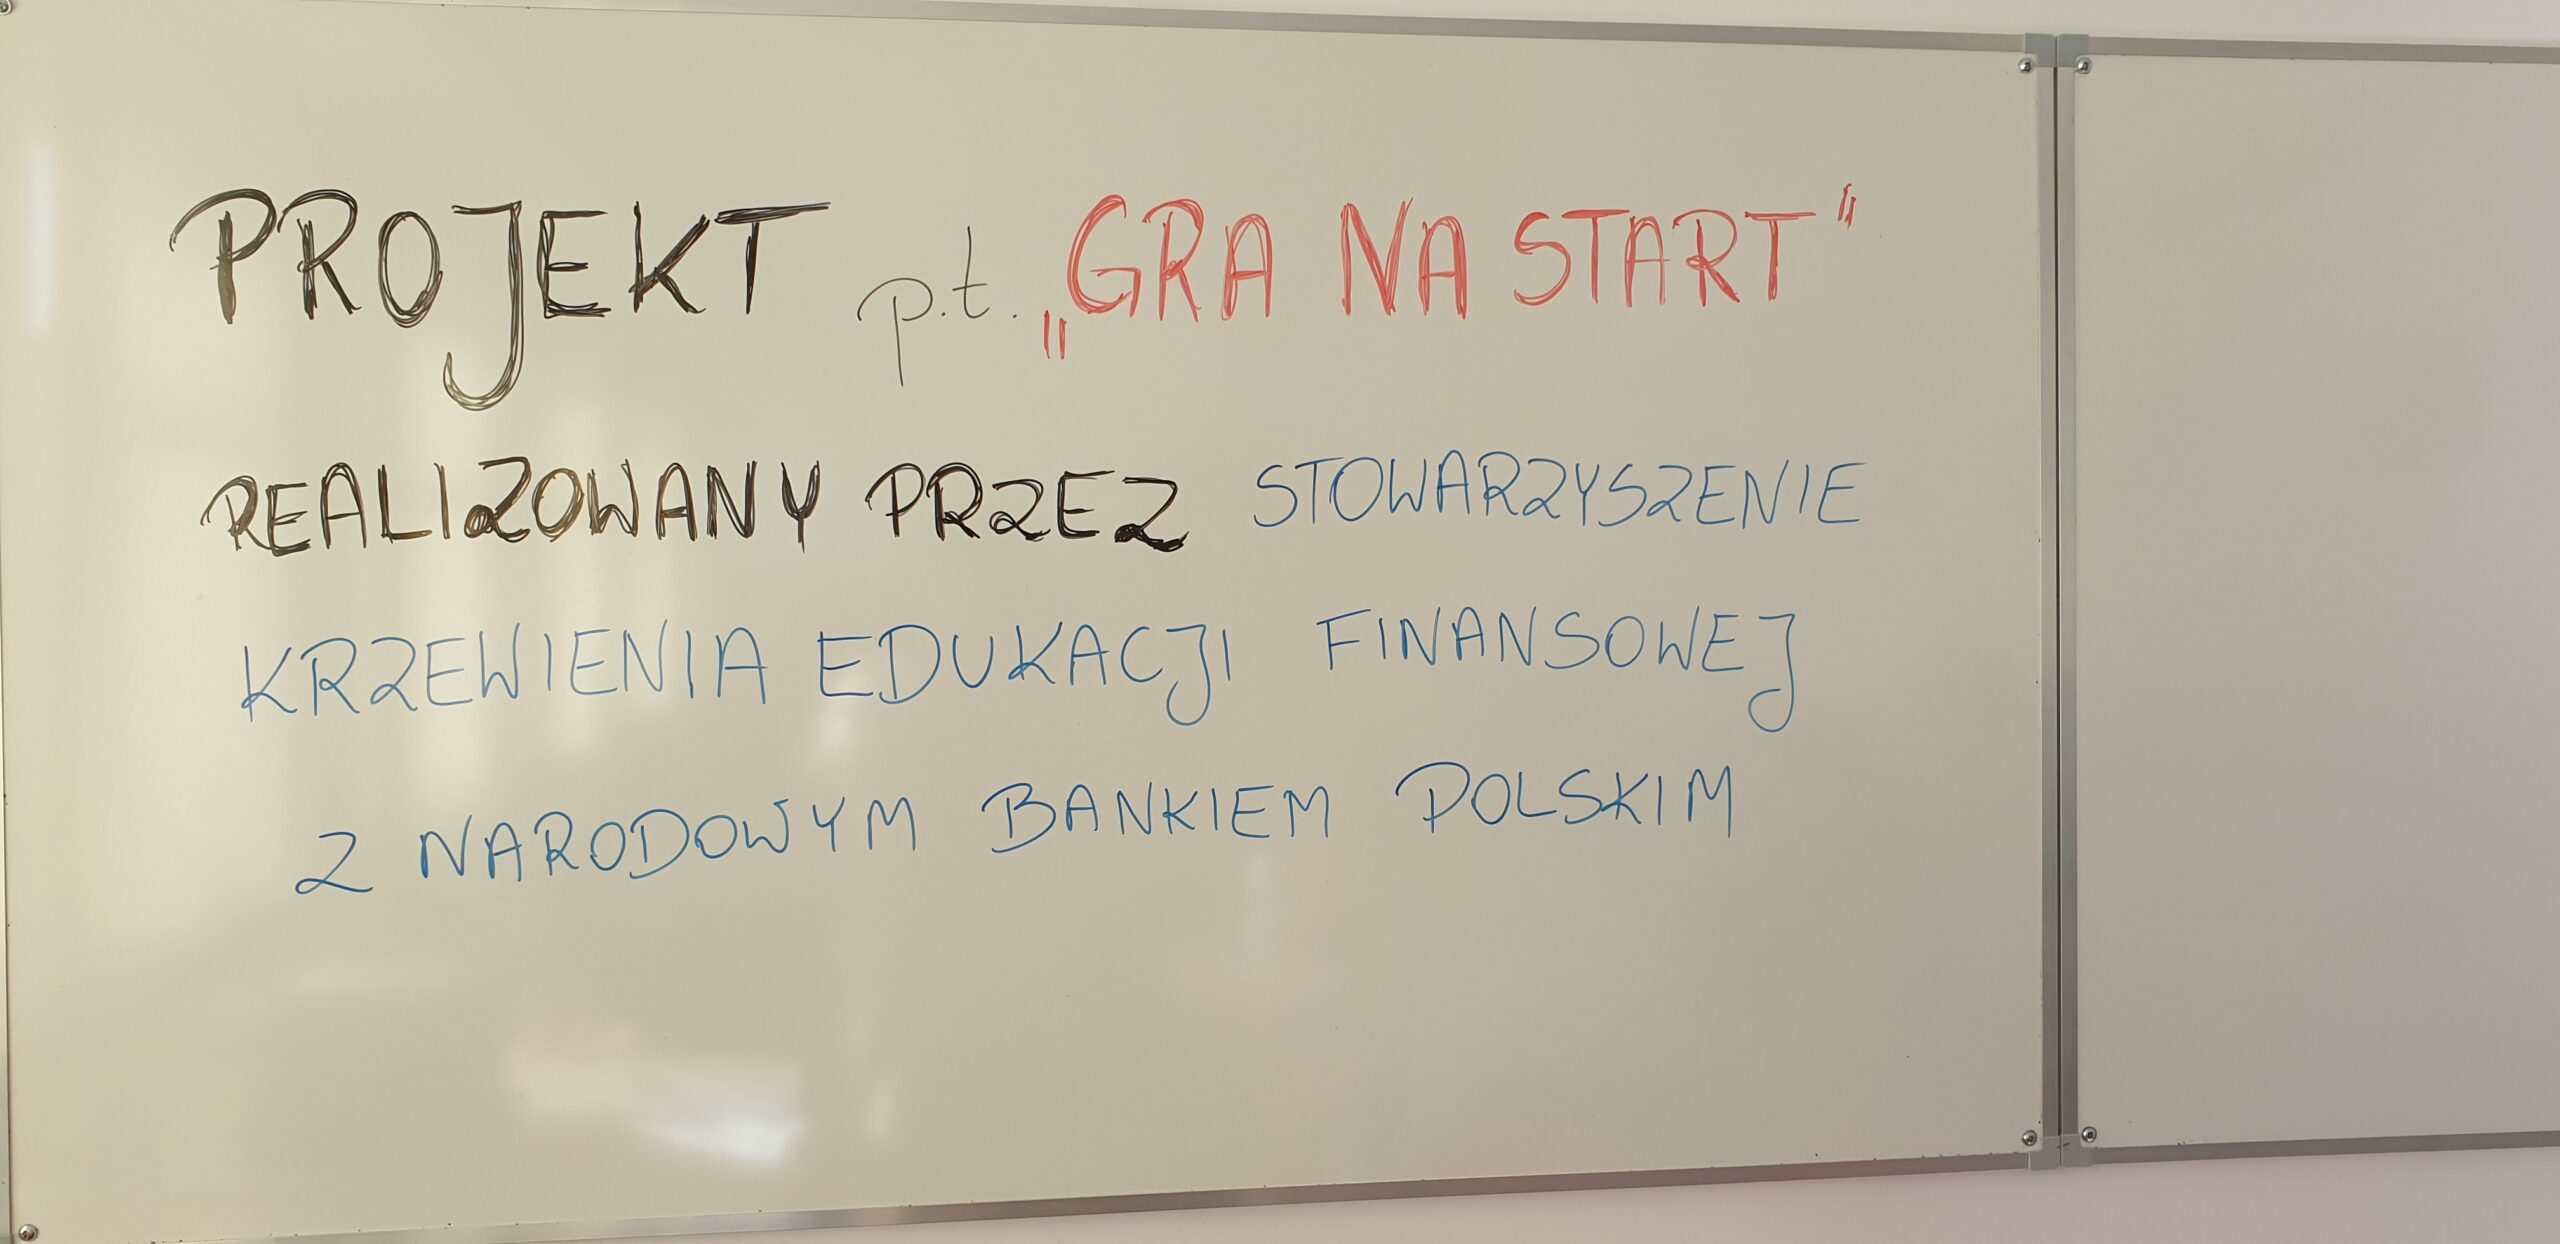 PROJEKT p.t. „GRA NA START"
REALIZOWANY PRZEZ STOWARZYSZENIE
KRZEWIENIA EDUKACJI FINANSOWEJ
Z NARODOWYM BANKIEM POLSKIM